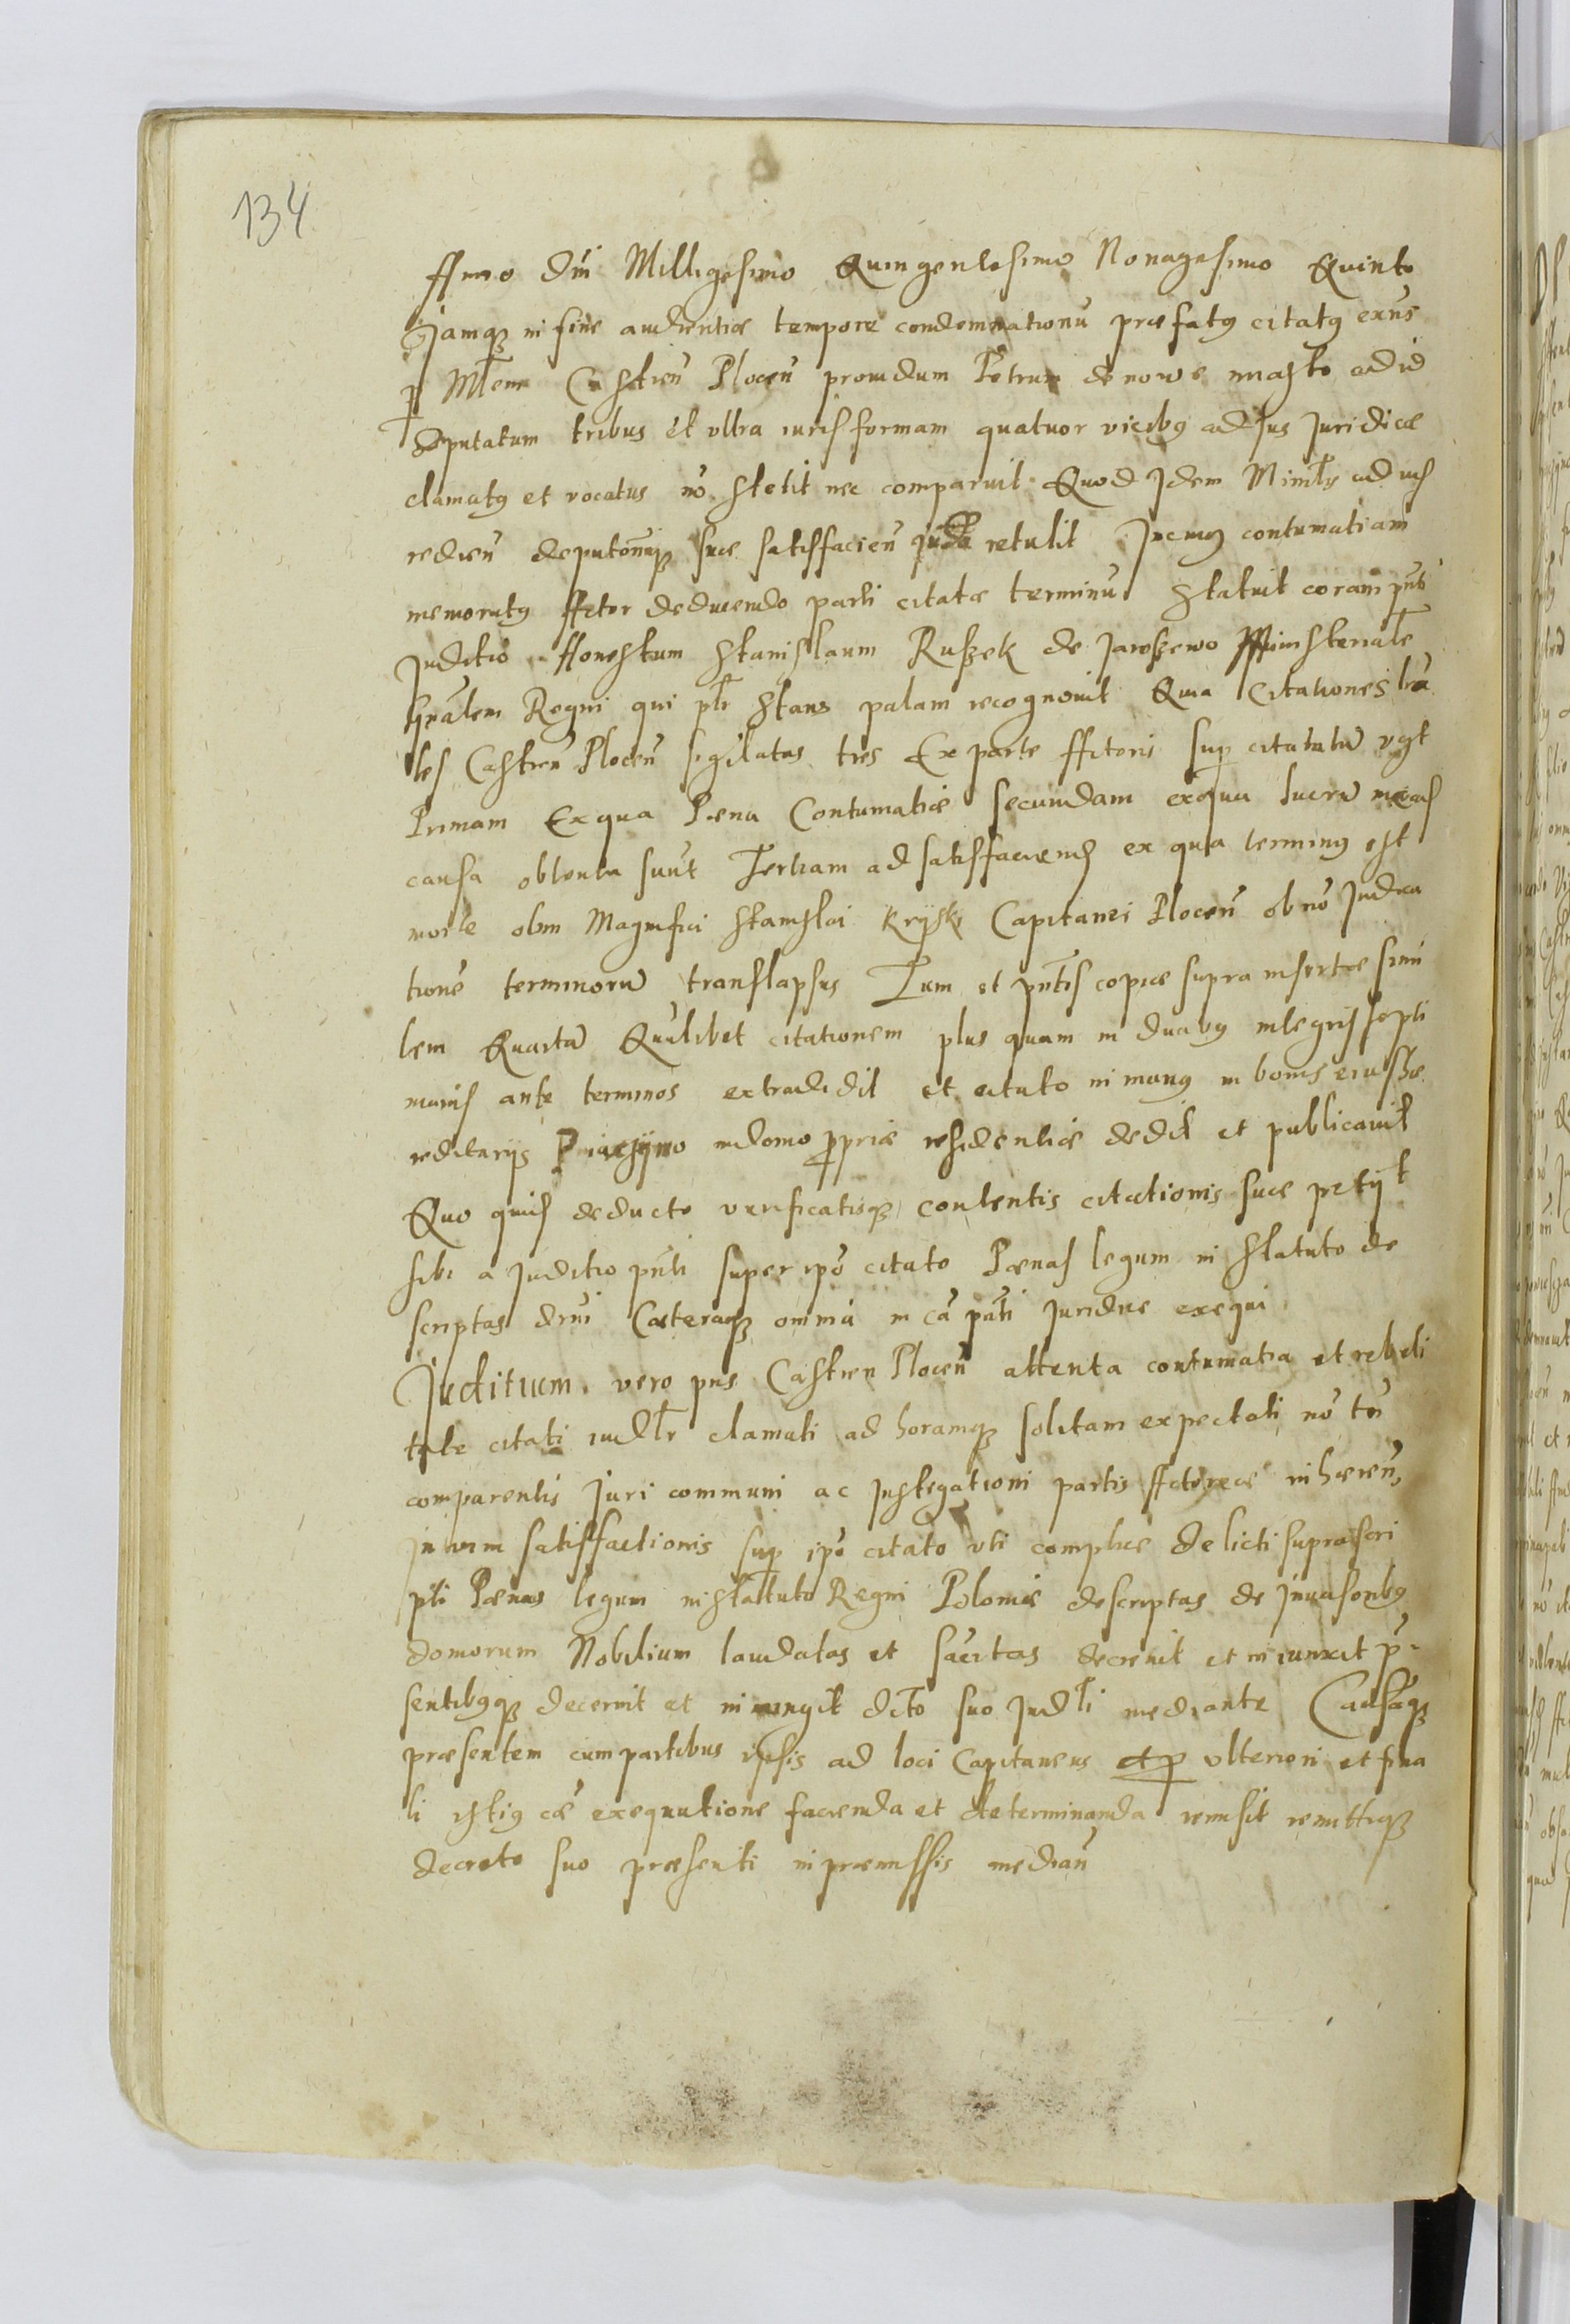 134
Anno Dni Milligesimo Quingentesimo Nonagesimo Quinto
Jamq in fine audientiæ tempore condemnationu præfatg citatg exns
p Mlem Castren Plocen prouidum Petrum de nowe miasto ad id
deputatum tribus et vltra iuris formam quatuor vicibg ad Jus Juridicæ
clamatg et vocatus nō stetit nec comparuit. Quod Idem Minrlis ad
redien deputonuiq suæ satisfacien retulit In cuig contumatiam
memoratg Actor deducendo parti citatæ terminu statuit coram pnti
Juditio Honestum Stanislaum Ruszek de Jaroszewo Ministeriale
Gnalem Regni qui plr stans palam recognouit Quia Citationes lrā
les Castren Plocen sigillatas tres Ex parte Actoris sup citatū vgt
Primam Ex qua Pæna Contumatiæ secundam ex qua lucrū
causa obtenta sunt Tertiam ad satisfaciend ex qua terming est
morte olim Magnifici Stanislai Krÿski Capitanei Plocen ob nō Judica
tione terminorū translapsus Tum et pntis copiæ supra insertæ simi
lem Quartā Qualibet citationem plus quam in duabg integris septi
manis ante terminos extradidit et citato in mang in bonis eius hæ
reditarijs in domo ppriæ residentiæ dedit et publicauit
Quo quid deducto verificatisq contentis citationis suæ petijt
sibi a Juditio pnti super ipō citato Pænas legum in statuto de
scriptas Cæteraq omnia in cā pnti Juridice exequi
Juditium vero pns Castren Plocen attenta contumatia et rebeli
tate citati iudlr clamati ad horamq solitam expectati nō tn
comparentis Juri communi ac Instigationi partis Actoreæ inhæren
in vim satisfactionis sup ipō citato vti complice delicti suprascri
pti Pænas legum in statuto Regni Poloniæ descriptas de Inuasoribg
domorum Nobilium laudatas et sācitas decreuit et iniunxit p-
sentibgq decernit et iniungit dcto suo Judli mediante Causāq
præsentem cum partibus ipsis ad loci Capitaneus p vlteriori et fina
li istig cæ exequutione facienda et determinanda remisit remittitq
decreto suo præsenti in præmissis median